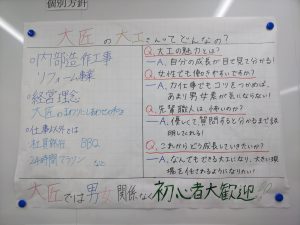 個別方針
大匠の大工さんってどんなの?
○内部造作工事
リフォーム事業
○経営理念
大匠のまわりにしあわせの和を
○仕事以外とは
社員旅行 BBQ
24時間マラソン など
Q.大工の魅力とは?
A.自分の成長が目で見て分かる!
Q.女性でも働きやすいですか?
A.力仕事でもコツをつかめば、
あまり男女差が気にならない!
Q.先輩職人は、怖いのか?
A.優しくて質問すると分かるまで説
明してくれる!
Q.これからどう成長していきたいか?
A.なんでもできる大工になり、大きい現
場を任されるようになりたい!
大匠では男女関係なく初心者大歓迎